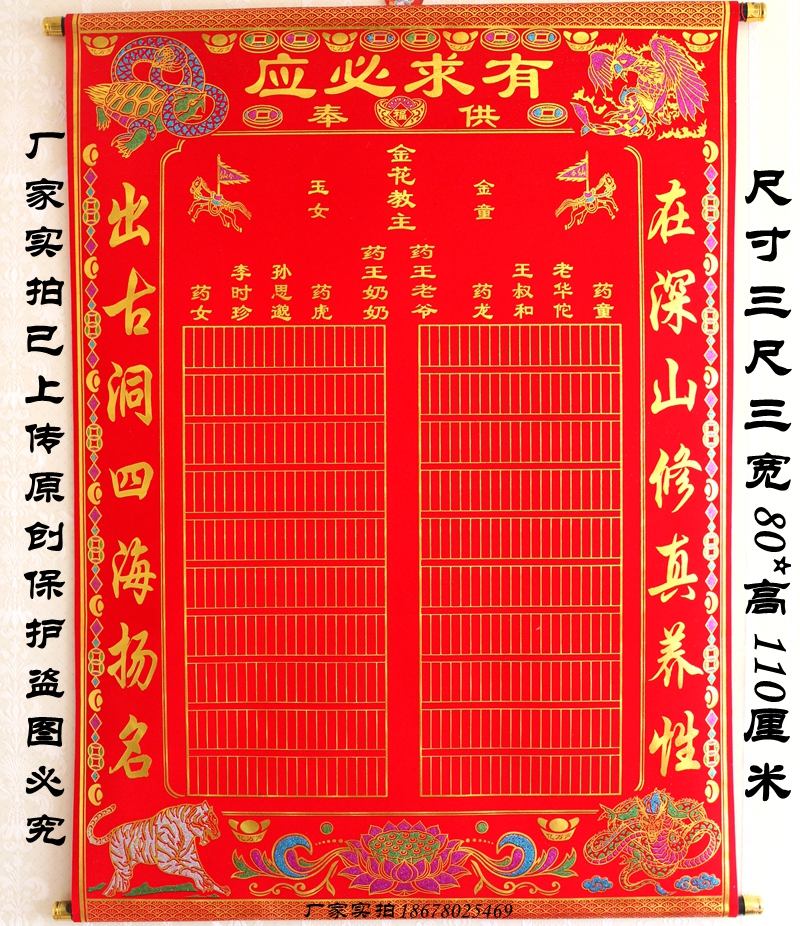 有求必应
供奉
福
金花教主
金童
玉女
药王老爷
药王奶奶
药童
老华佗
王叔和
药龙
药虎
孙思邈
李时珍
药女
在深山修真养性
出古洞四海扬名
尺寸三尺三宽80*高110厘米
厂家实拍已上传原创保护盗图必究
厂家实拍18678025469